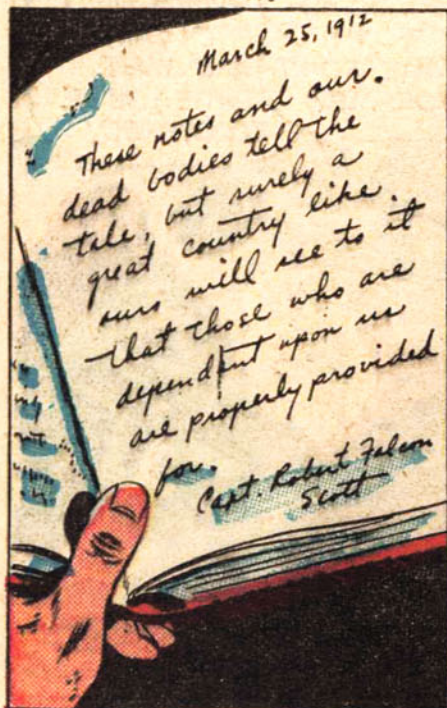 March 25, 1912
These notes and our
dead bodies tell the
tale, but surely a
great country like
ours will see to it
that those who are
dependent upon us
are properly provided
for.
Capt. Robert Falcon
Scott